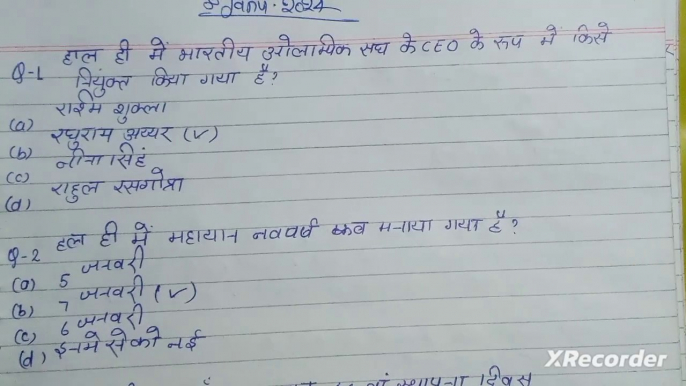 Janu. 2024
Q-1 हाल ही में भारतीय ओलाम्पिक संघ के CEO के रुप में किसे
नियुक्त किया गया है?
(a) राश्मि शुक्ला
(b) रघुराम अय्यर (✓)
(c) नीना सिहं
(d) राहुल रसगोत्रा
Q-2 हाल ही में महायान नववर्ष कब मनाया गया है?
(a) 5 जनवरी
(b) 7 जनवरी (✓)
(c) 6 जनवरी
(d) इनमे से को नई
वां स्थापना दिवस
XRecorder